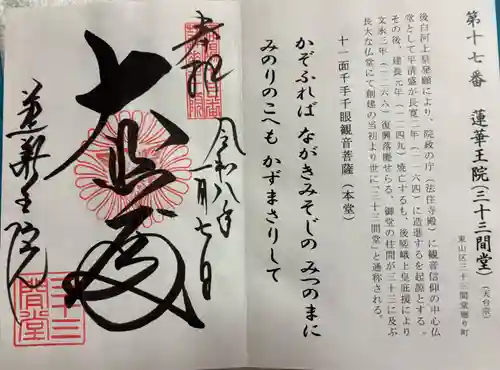 第十七番 蓮華王院(三十三間堂)(天台宗)
東山区三十三間堂廻り町
後白河上皇発願により、院政の庁(法住寺殿)に観音信仰の中心仏
堂として平清盛が長寛二年(一一六四)に造進するを起源とする。
その後、建長元年(一二四九)焼亡するも、後嵯峨上皇庇援により
文永三年(一二六六)復興落慶せらる。御堂の柱間が三十三に及ぶ
長大な仏堂にて創建の当初より世に「三十三間堂」と通称される。
十一面千手千眼観音菩薩(本堂)
かぞふれば ながきみそじの みつのまに
みのりのこへも かずまさりして
奉拝
令和八年一月七日
大悲殿
蓮華王院
三十三間堂